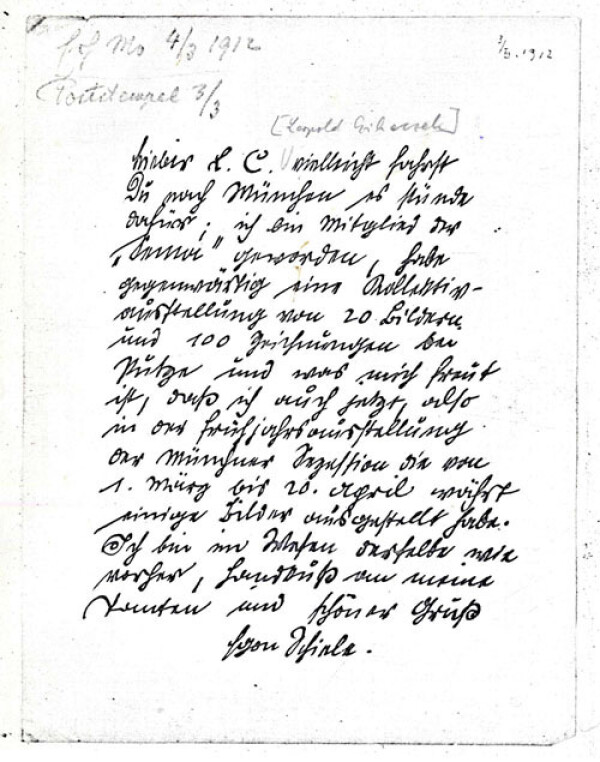 4/3 1912
3/3. 1912
Poststempel 3/3
[Leopold Czihaczek]
Lieber L. C. vielleicht fahrst
Du nach München es stünde
dafür; ich bin Mitglied der
„Sema“ geworden, habe
gegenwärtig eine Kollektiv-
ausstellung von 20 Bildern
und 100 Zeichnungen bei
Putze und was mich freut
ist, daß ich auch jetzt, also
in der Frühjahrsausstellung
der Münchner Sezession die von
1. März bis 20. April währt
einige Bilder ausgestellt habe.
Ich bin im Wesen derselbe wie
vorher, Handkuß an meine
Tanten und schöner Gruß
Egon Schiele.